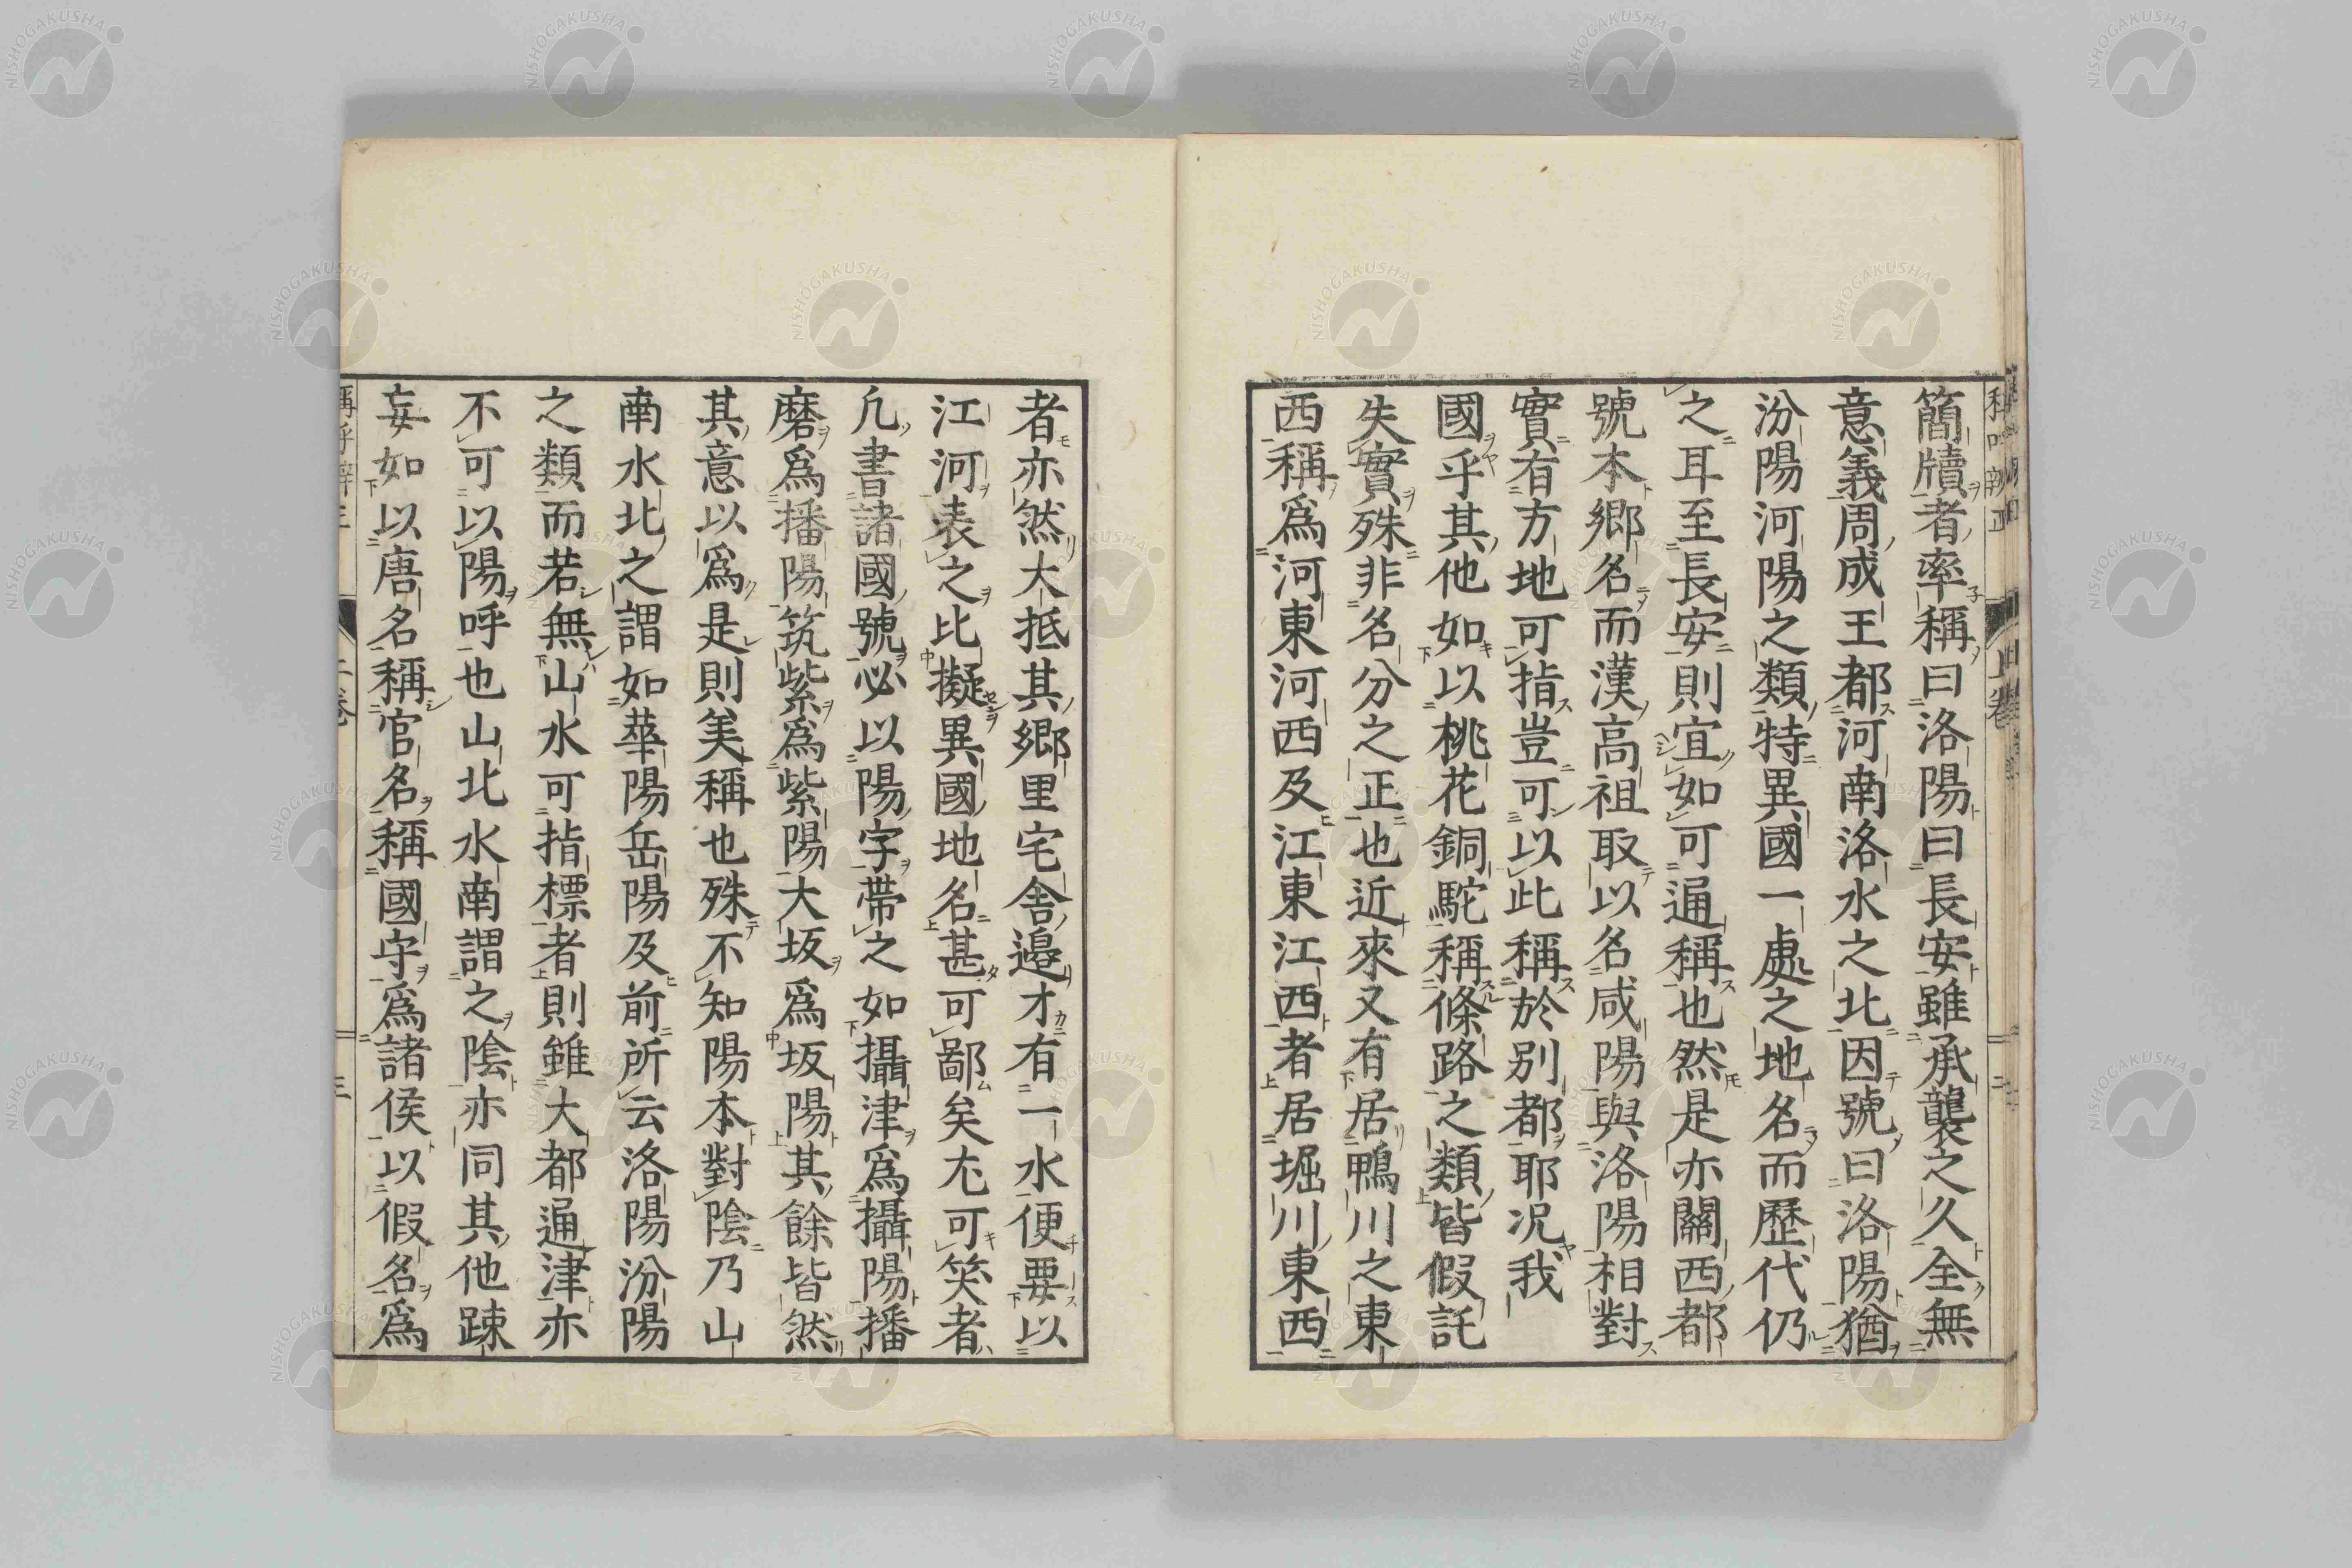 簡牘者率稱曰洛陽曰長安雖承襲之久全無
意義周成王都河南洛水之北因號曰洛陽猶
汾陽河陽之類特異國一處之地名而歷代仍
之耳至長安則宜如可通稱也然是亦關西都
號本鄉名而漢高祖取以名咸陽與洛陽相對
實有方地可指豈可以此稱於別都耶況我
國乎其他如以桃花銅駝稱條路之類皆假託
失實殊非名分之正也近來又有居鴨川之東
西稱爲河東河西及江東江西者居堀川東西
者亦然大抵其鄉里宅舍邉才有一水便要以
江河表之比擬異國地名甚可鄙矣尤可笑者
凡書諸國號必以陽字帶之如攝津爲攝陽播
磨爲播陽筑紫爲紫陽大坂爲坂陽其餘皆然
其意以爲是則美稱也殊不知陽本對陰乃山
南水北之謂如華陽岳陽及前所云洛陽汾陽
之類而若無山水可指標者則雖大都通津亦
不可以陽呼也山北水南謂之陰亦同其他踈
妄如以唐名稱官名稱國守爲諸侯以假名爲
NISHOGAKUSHA